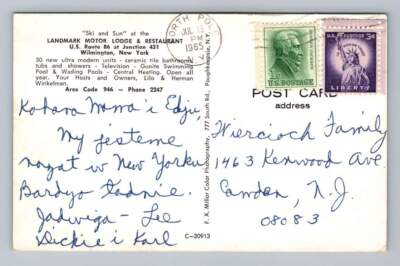 "Ski and Sun" at the
LANDMARK MOTOR LODGE & RESTAURANT
U.S. Route 86 at Junction 431
Wilmington, New York
30 new ultra modern units - ceramic tile bathroom
tubs and showers - Television - Gunite Swimming
Pool & Wading Pools - Central Heating. Open all
year. Your Hosts and Owners, Lila & Herman
Winkelman.
Area Code 946 - Phone 2247
NORTH POLE
JUL
PM
1965
1¢
U.S. POSTAGE
3¢
LIBERTY
POST CARD
address
F. X. Millor Color Photography, 777 South Rd. Poughkeepsie, N.Y.
Kohana Mama i Edziu
My jesteme
nayat w New Yorku
Bardzo Ladnie.
Jadwiga - Lee
Dickie i Karl
C-30913
Wiercioch Family
1463 Kenwood Ave.
Camden, N.J.
08083